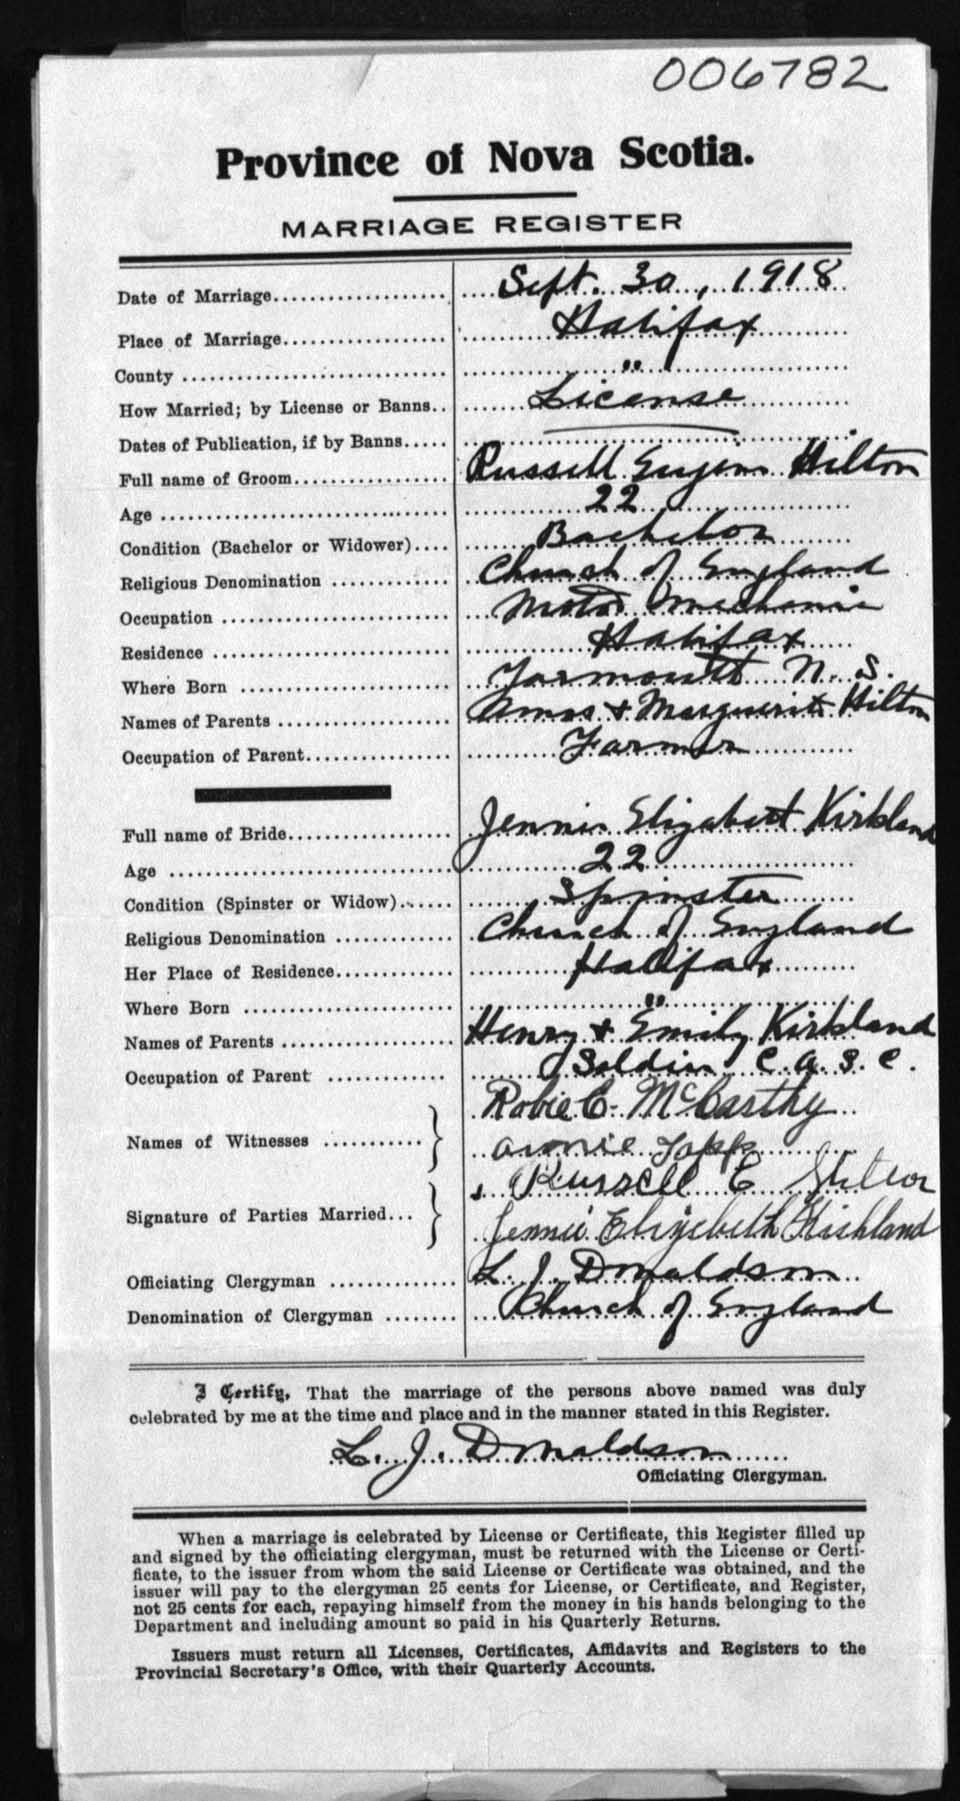 006782
Province of Nova Scotia.
MARRIAGE REGISTER
Date of Marriage Sept. 30, 1918
Place of Marriage Halifax
County "
How Married; by License or Banns.. License
Dates of Publication, if by Banns
Full name of Groom Russell Eugene Hilton
Age 22
Condition (Bachelor or Widower) Bachelor
Religious Denomination Church of England
Occupation Motor Mechanic
Residence Halifax
Where Born Yarmouth N. S.
Names of Parents Amos + Marguerite Hilton
Occupation of Parent Farmer
Full name of Bride Jennie Elizabeth Kirkland
Age 22
Condition (Spinster or Widow) Spinster
Religious Denomination Church of England
Her Place of Residence Halifax
Where Born "
Names of Parents Henry + Emily Kirkland
Occupation of Parent Soldier C. A. S. C.
Names of Witnesses Robie E. McCarthy
Annie Topp
Signature of Parties Married Russell E Hilton
Jennie Elizebeth Kirkland
Officiating Clergyman L. J. Donaldson
Denomination of Clergyman Church of England
I Certify, That the marriage of the persons above named was duly
celebrated by me at the time and place and in the manner stated in this Register.
L. J. Donaldson
Officiating Clergyman.
When a marriage is celebrated by License or Certificate, this Register filled up
and signed by the officiating clergyman, must be returned with the License or Certi-
ficate, to the issuer from whom the said License or Certificate was obtained, and the
issuer will pay to the clergyman 25 cents for License, or Certificate, and Register,
not 25 cents for each, repaying himself from the money in his hands belonging to the
Department and including amount so paid in his Quarterly Returns.
Issuers must return all Licenses, Certificates, Affidavits and Registers to the
Provincial Secretary's Office, with their Quarterly Accounts.